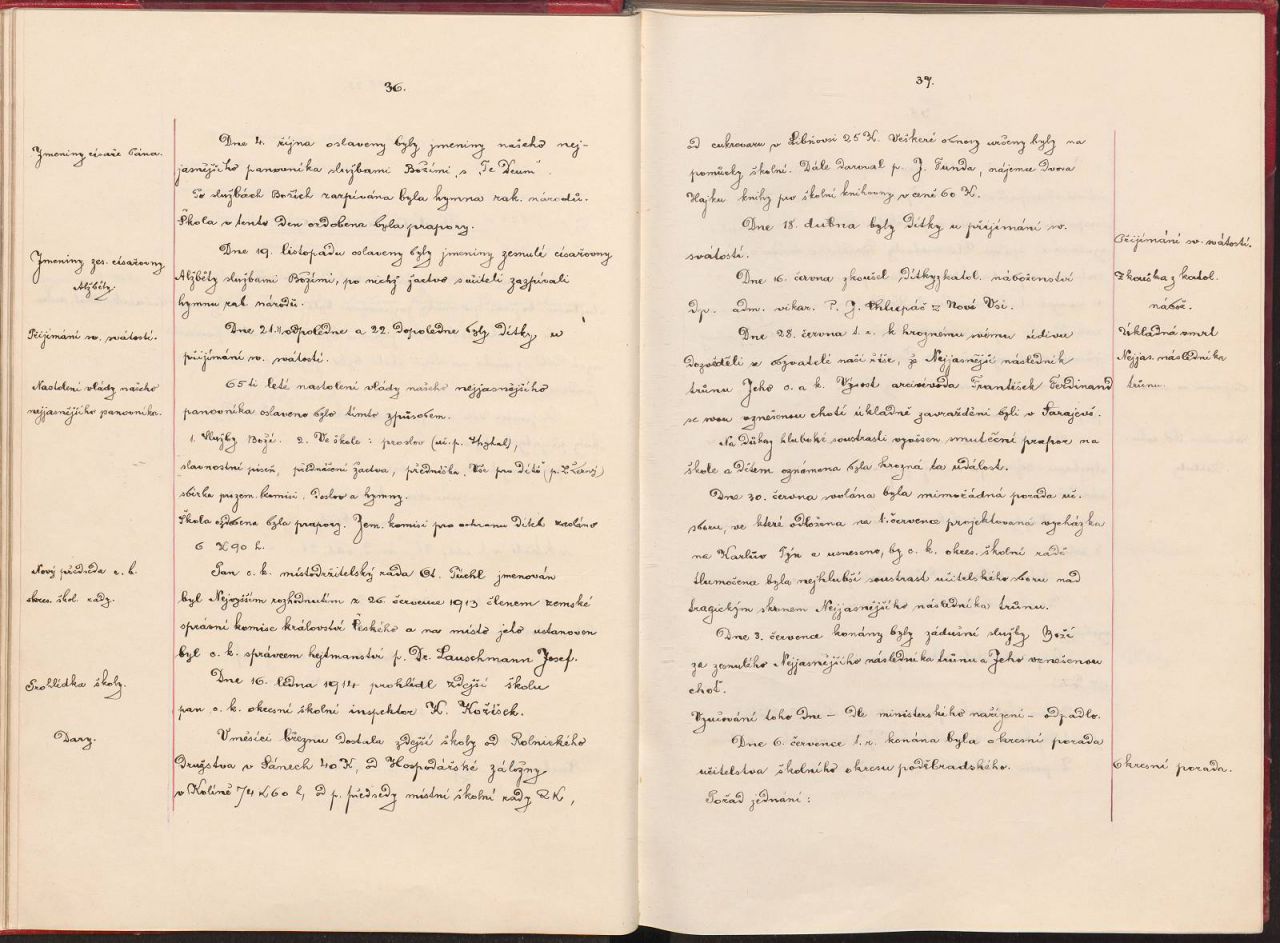 36.
Jmeniny císaře Pána.
Dne 4. října oslaveny byly jmeniny našeho nej-
jasnějšího panovníka službami Božími, s "Te Deum".
Po službách Božích zazpívána byla hymna rak. národů.
Škola v tento den ozdobena byla prapory.
Jmeniny zes. císařovny
Alžběty
Dne 19. listopadu oslaveny byly jmeniny zemulé císařovny
Alžběty službami Božími, po nichž žactvo s učiteli zazpívali
hymnu rak. národů.
Přijímání sv. svátostí.
Dne 21. odpoledne a 22. dopoledne byly dítky u
přijímání sv. svátostí.
Nastolení vlády našeho
nejjasnějšího panovníka.
65ti leté nastolení vlády našeho nejjasnějšího
panovníka oslaveno bylo tímto způsobem.
1. Služby Boží. 2. Ve škole: proslov (uč. p.
slavnostní píseň, přednášení žactva, přednáška. Vše pro dítě (p.
sbírka pro zem. komisi. Doslov a hymny.
Škola ozdobena byla prapory. Zem. komisi pro ochranu dítek zasláno
6 K 90 h.
Nový předseda c. k.
okres. škol. rady.
Pan c. k. místodržitelský rada Ot. Püchl jmenován
byl Nejvyšším rozhodnutím z 26. července 1913 členem zemské
správní komise království Českého a na místo jeho ustanoven
byl c. k. správcem hejtmanství p. Dr. Lauschmann Josef.
Prohlídka školy.
Dne 16. ledna 1914 prohlédl zdejší školu
pan c. k. okresní školní inspektor K. Kořízek.
Dary.
V měsíci březnu dostala zdejší školy od Rolnického
družstva v Sánech 40 K, od Hospodářské záložny
v Kolíně 74 K 60 h, od p. předsedy místní školní rady 2 K,
37.
od cukrovaru v Libňovsi 25 K. Veškeré obnosy určeny byly na
pomůcky školní. Dále daroval p. J. Funda, nájemce dvora
Hájku knihy pro školní knihovny v ceně 60 K.
Dne 18. dubna byly dítky u přijímání sv.
svátostí.
Přijímání sv. svátostí.
Dne 16. června zkoušel dítky z katol. náboženství
dp. adm. vikar. P. J. Chlepáč z Nové Vsi.
Zkouška z katol.
nábož.
Dne 28. června t. r. k hroznému svému údivu
dozvěděli se obyvatelé naší říše, že Nejjasnější následník
trůnu Jeho c. a k. Výsost arcivévoda František Ferdinand
se svou vznešenou chotí úkladně zavražděni byli v Sarajevě.
Úkladná smrt
Nejjas. následníka
trůnu.
Na důkaz hluboké soustrasti vyvěšen smuteční prapor na
škole a dětem oznámena byla hrozná ta událost.
Dne 30. června svolána byla mimořádná porada uč.
sboru, ve které odložena na 1. července projektovaná vycházka
na Karlův Týn a usneseno, by c. k. okres. školní radě
tlumočena byla nejhlubší soustrast učitelského sboru nad
tragickým skonem Nejjasnějšího následníka trůnu.
Dne 3. července konány byly zádušní služby Boží
za zemulého Nejjasnějšího následníka trůnu a Jeho vznešenou
choť.
Vyučování toho dne – dle ministerského nařízení – odpadlo.
Dne 6. července t. r. konána byla okresní porada
učitelstva školního okresu poděbradského.
Okresní porada.
Pořad jednání: